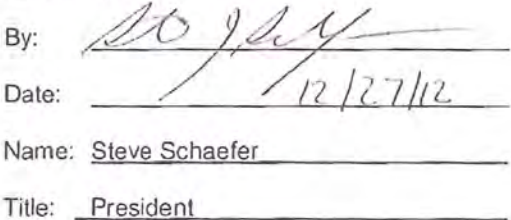 By:
Date: 12/27/12
Name: Steve Schaefer
Title: President